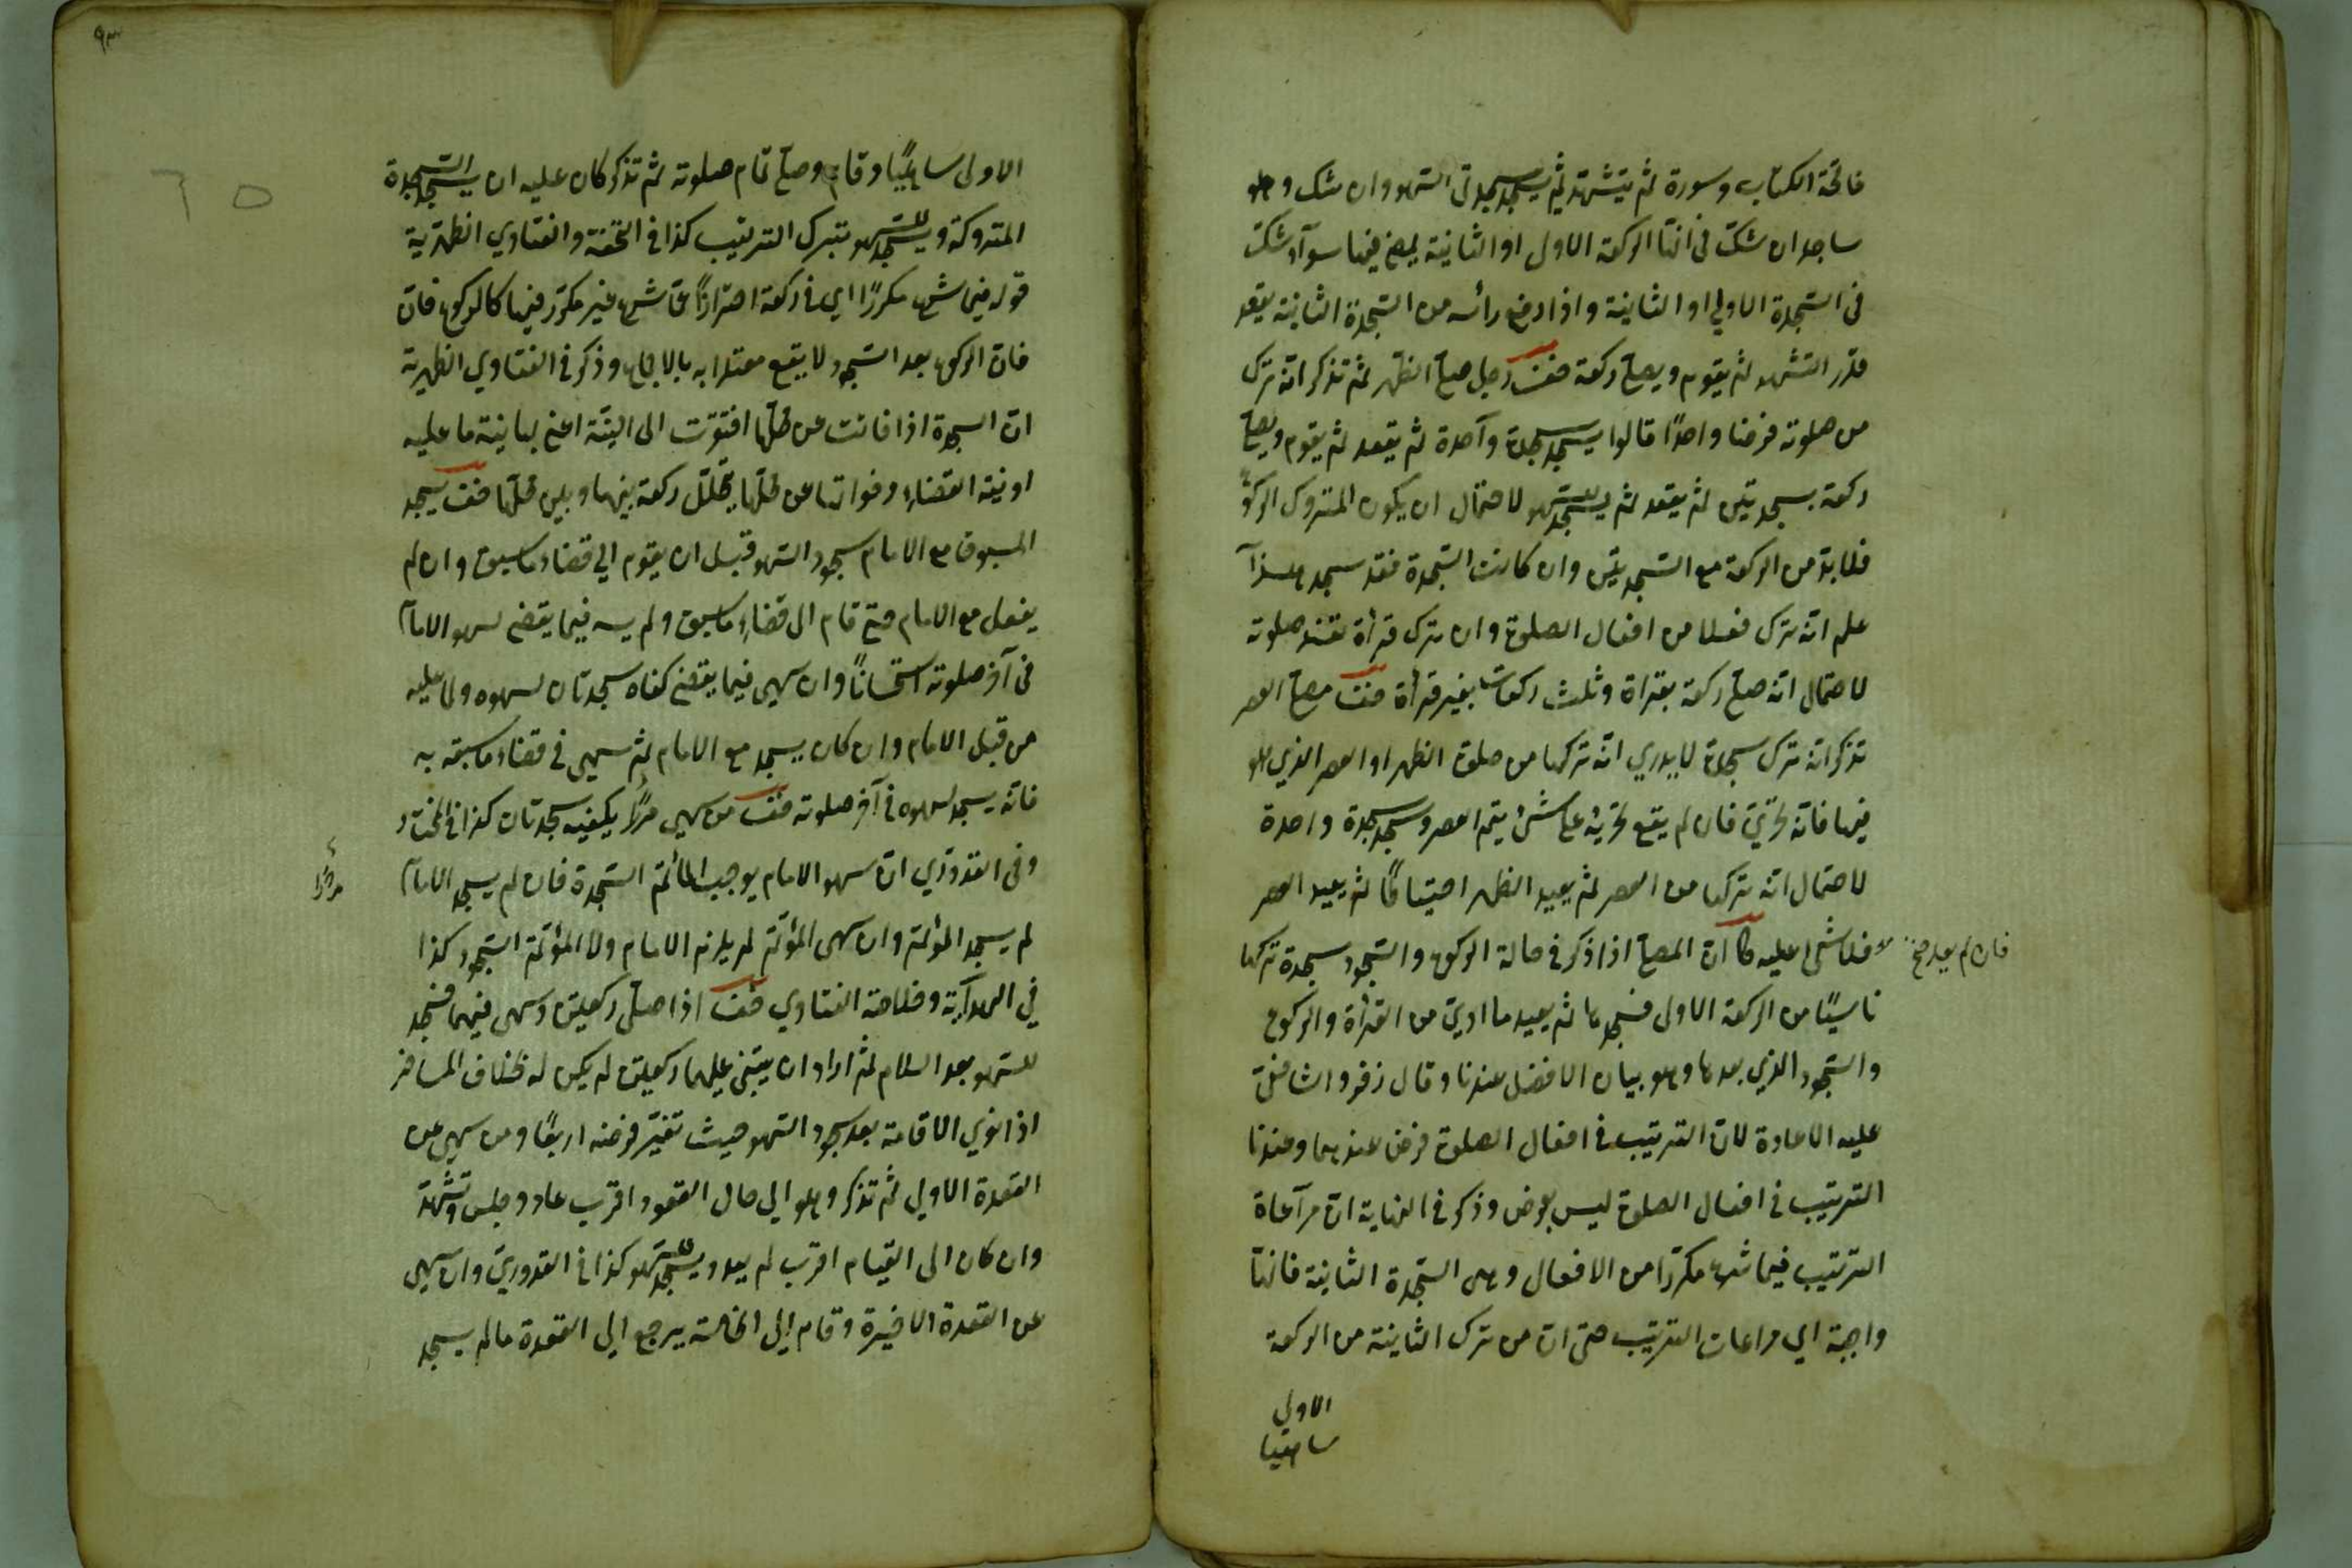 فاتحة الكتاب وسورة ثم يتشهد ثم يسجد سجدتى السهو وان شك وهو
ساجد ان شك فى انها الركعة الاولى او الثانية يمضى فيها سوآء شك
فى السجدة الاولى او الثانية واذا رفع رأسه من السجدة الثانية يقعد
قدر التشهد ثم يقوم ويصلى ركعة رجل صلى الظهر ثم تذكر انه ترك
من صلوته فرضا واحدًا قالوا يسجد سجدة وآحدة ثم يقعد ثم يقوم ويصلى
ركعة بسجدتين ثم يقعد ثم يسجد للسهو لاحتمال ان يكون المتروك الركوع
فلا بد من الركعة مع السجدتين وان كانت السجدة فقد سجد هذا
علم انه ترك فعلا من افعال الصلوة وان ترك قرأة تفسد صلوته
لاحتمال انه صلى ركعة بقراة وثلث ركعات بغير قرأة مصلى العصر
تذكر انه ترك سجدة لا يدري انه تركها من صلوة الظهر او العصر الذي هو
فيها فانه تحرى فان لم يقع تحريه على شئ يتم العصر وسجد سجدة واحدة
لاحتمال انه تركها من العصر ثم يعيد الظهر احتياطًا ثم يعيد العصر
فان لم يعد صح
فلا شئ عليه ان المصلى اذا ذكر فى حالة الركوع والسجود سجدة تركها
ناسيًا من الركعة الاولى فسجدها ثم يعيد ما ادى من القرأة والركوع
والسجود الذي بعدها وهو بيان الافضل عندنا وقال زفر والشافعى
عليه الاعادة لان الترتيب فى افعال الصلوة فرض عندهما وعندنا
الترتيب فى افعال الصلوة ليس بفرض وذكر فى النهاية ان مرآعاة
الترتيب فيما شرع مكررًا من الافعال وهى السجدة الثانية فانها
واجبة اي مراعات الترتيب حتى ان من ترك الثانية من الركعة
الاولى
ساهيا
٩٣
65
الاولى ساهيًا وقام وصلى تمام صلوته ثم تذكر كان عليه ان يسجد السجدة
المتروكة ويسجد للسهو بترك الترتيب كذا فى التحفة والفتاوي الظهيرية
قوله فيما شرع مكررًا اي فى ركعة احترازًا عما شرع غير مكرر فيها كالركوع فان
فان الركوع بعد السجود لا يقع معتدا به بالاجماع وذكر فى الفتاوي الظهيرية
ان السجدة اذا فاتت عن محلها افتقرت الى النية اعنى بها نية ما عليه
او نية القضاء وفواتها عن محلها بتخلل ركعة بينها وبين محلها يسجد
المسبوق مع الامام سجود السهو قبل ان يقوم الي قضاء ما سبق وان لم
يفعل مع الامام حتى قام الى قضاء ما سبق ولم يسه فيما يقضى لسهو الامام
فى آخر صلوته استحسانًا وان سهى فيما يقضى كفاه سجدتان لسهوه ولما عليه
من قبل الامام وان كان يسجد مع الامام ثم سهى فى قضاء ما سبقه به
فانه يسجد لسهوه فى آخر صلوته من سهى مرارًا يكفيه سجدتان كذا فى
وفى القدوري ان سهو الامام يوجب على المؤتم السجدة فان لم يسجد الامام
مرارًا
لم يسجد المؤتم وان سهى المؤتم لم يلزم الامام ولا المؤتم السجود كذا
في الهدآية وخلاصة الفتاوي اذا صلى ركعتين وسهى فيهما فسجد
للسهو بعد السلام ثم اراد ان يبنى عليهما ركعتين لم يكن له بخلاف المسافر
اذا نوي الاقامة بعد سجود السهو حيث تغير فرضه اربعًا ومن سهى عن
القعدة الاولي ثم تذكر وهو الي حال القعود اقرب عاد وجلس وتشهد
وان كان الى القيام اقرب لم يعد ويسجد للسهو كذا فى القدوري وان سهى
عن القعدة الاخيرة وقام الى الخامسة يرجع الي القعدة مالم يسجد